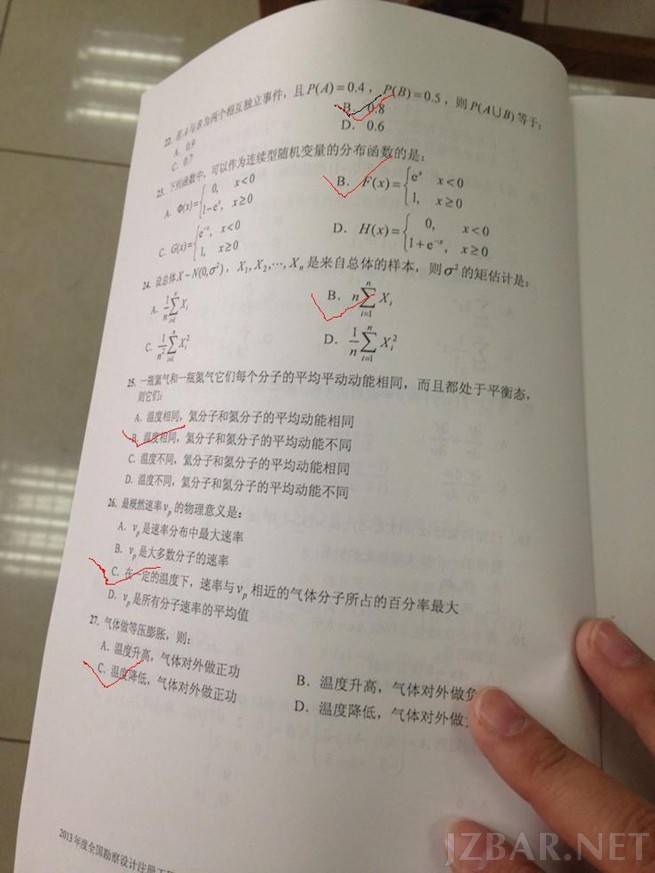 22. 若A与B为两个相互独立事件，且P(A)=0.4，P(B)=0.5，则P(A∪B)等于：
A. 0.9 B. 0.8
C. 0.7 D. 0.6
23. 下列函数中，可以作为连续型随机变量的分布函数的是：
A. Φ(x)={0, x<0; 1-eˣ, x≥0 B. F(x)={eˣ x<0; 1, x≥0
C. G(x)={e⁻ˣ, x<0; 1, x≥0 D. H(x)={0, x<0; 1+e⁻ˣ, x≥0
24. 设总体X~N(0,σ²)，X₁,X₂,…,Xₙ是来自总体的样本，则σ²的矩估计是：
A. 1/n ∑ᵢ₌₁ⁿ Xᵢ B. n ∑ᵢ₌₁ⁿ Xᵢ
C. 1/n² ∑ᵢ₌₁ⁿ Xᵢ² D. 1/n ∑ᵢ₌₁ⁿ Xᵢ²
25. 一瓶氦气和一瓶氮气它们每个分子的平均平动动能相同，而且都处于平衡态，
则它们：
A. 温度相同，氦分子和氮分子的平均动能相同
B. 温度相同，氦分子和氮分子的平均动能不同
C. 温度不同，氦分子和氮分子的平均动能相同
D. 温度不同，氦分子和氮分子的平均动能不同
26. 最概然速率vₚ的物理意义是：
A. vₚ是速率分布中最大速率
B. vₚ是大多数分子的速率
C. 在一定的温度下，速率与vₚ相近的气体分子所占的百分率最大
D. vₚ是所有分子速率的平均值
27. 气体做等压膨胀，则：
A. 温度升高，气体对外做正功 B. 温度升高，气体对外做负
C. 温度降低，气体对外做正功 D. 温度降低，气体对外做
2013年度全国勘察设计注册工
JZBAR.NET